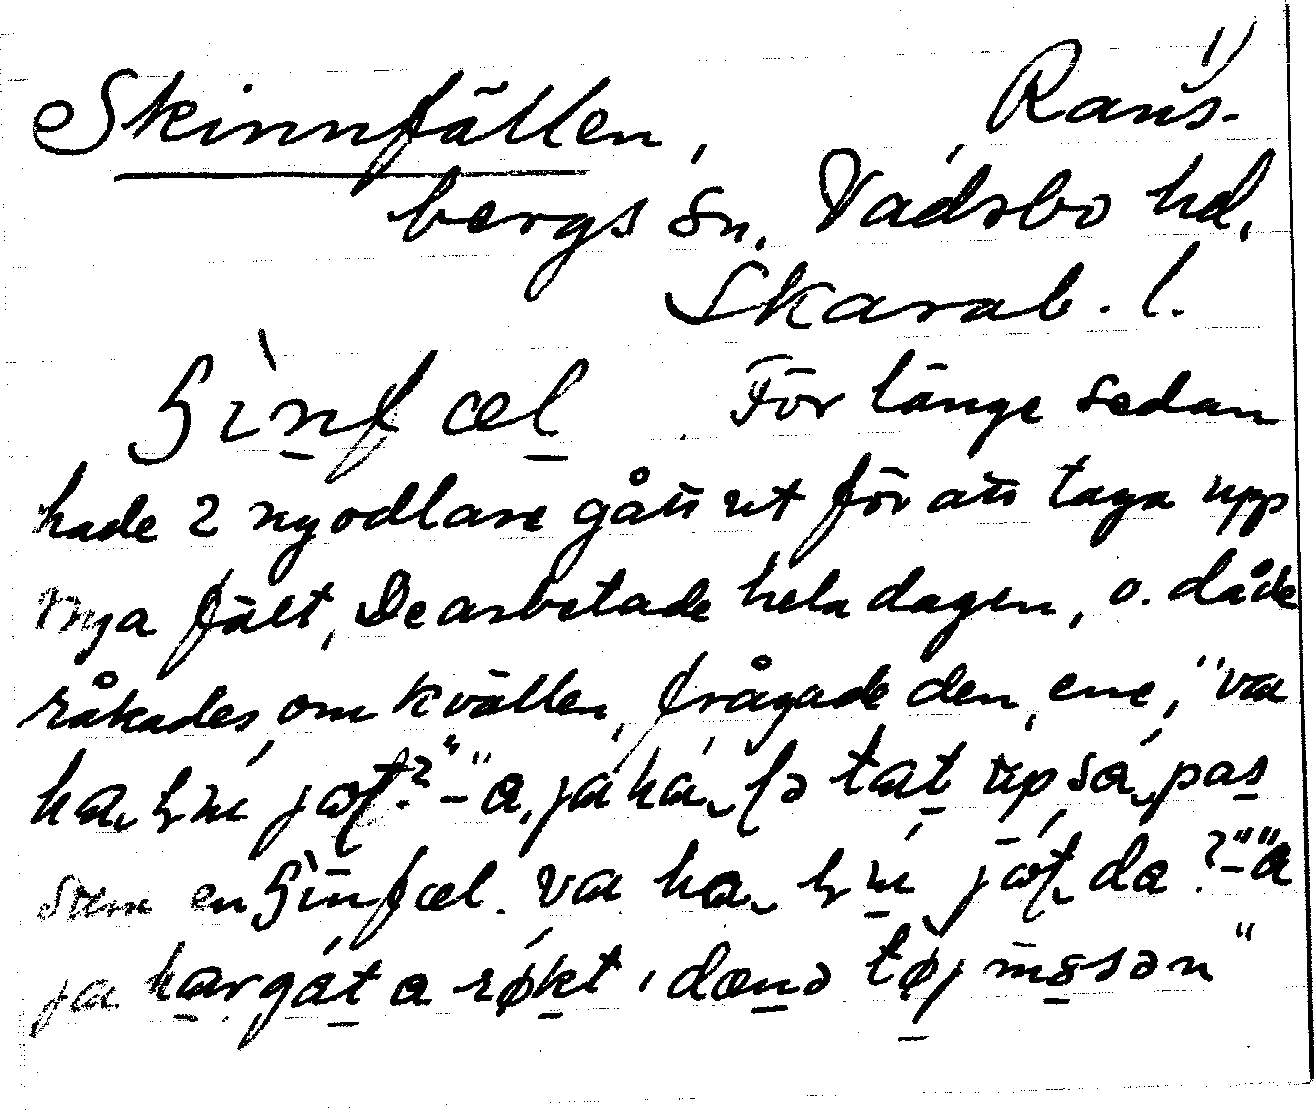 1)
Skinnfällen, Rans-
bergs sn, Vadsbo hd,
Skarab. l.
ʃinfæl För länge sedan
hade 2 nyodlare gått ut för att taga upp
nya fält, De arbetade hela dagen, o. då de
råkades om kvällen, frågade den ene, "va
ha du jɔʈ?" – "a, ja ha ʃə tat up så pas
som en ʃinfæl. va ha du jɔʈ da?" – "a
ja har gåt a røkt, dænə tøjmsən"